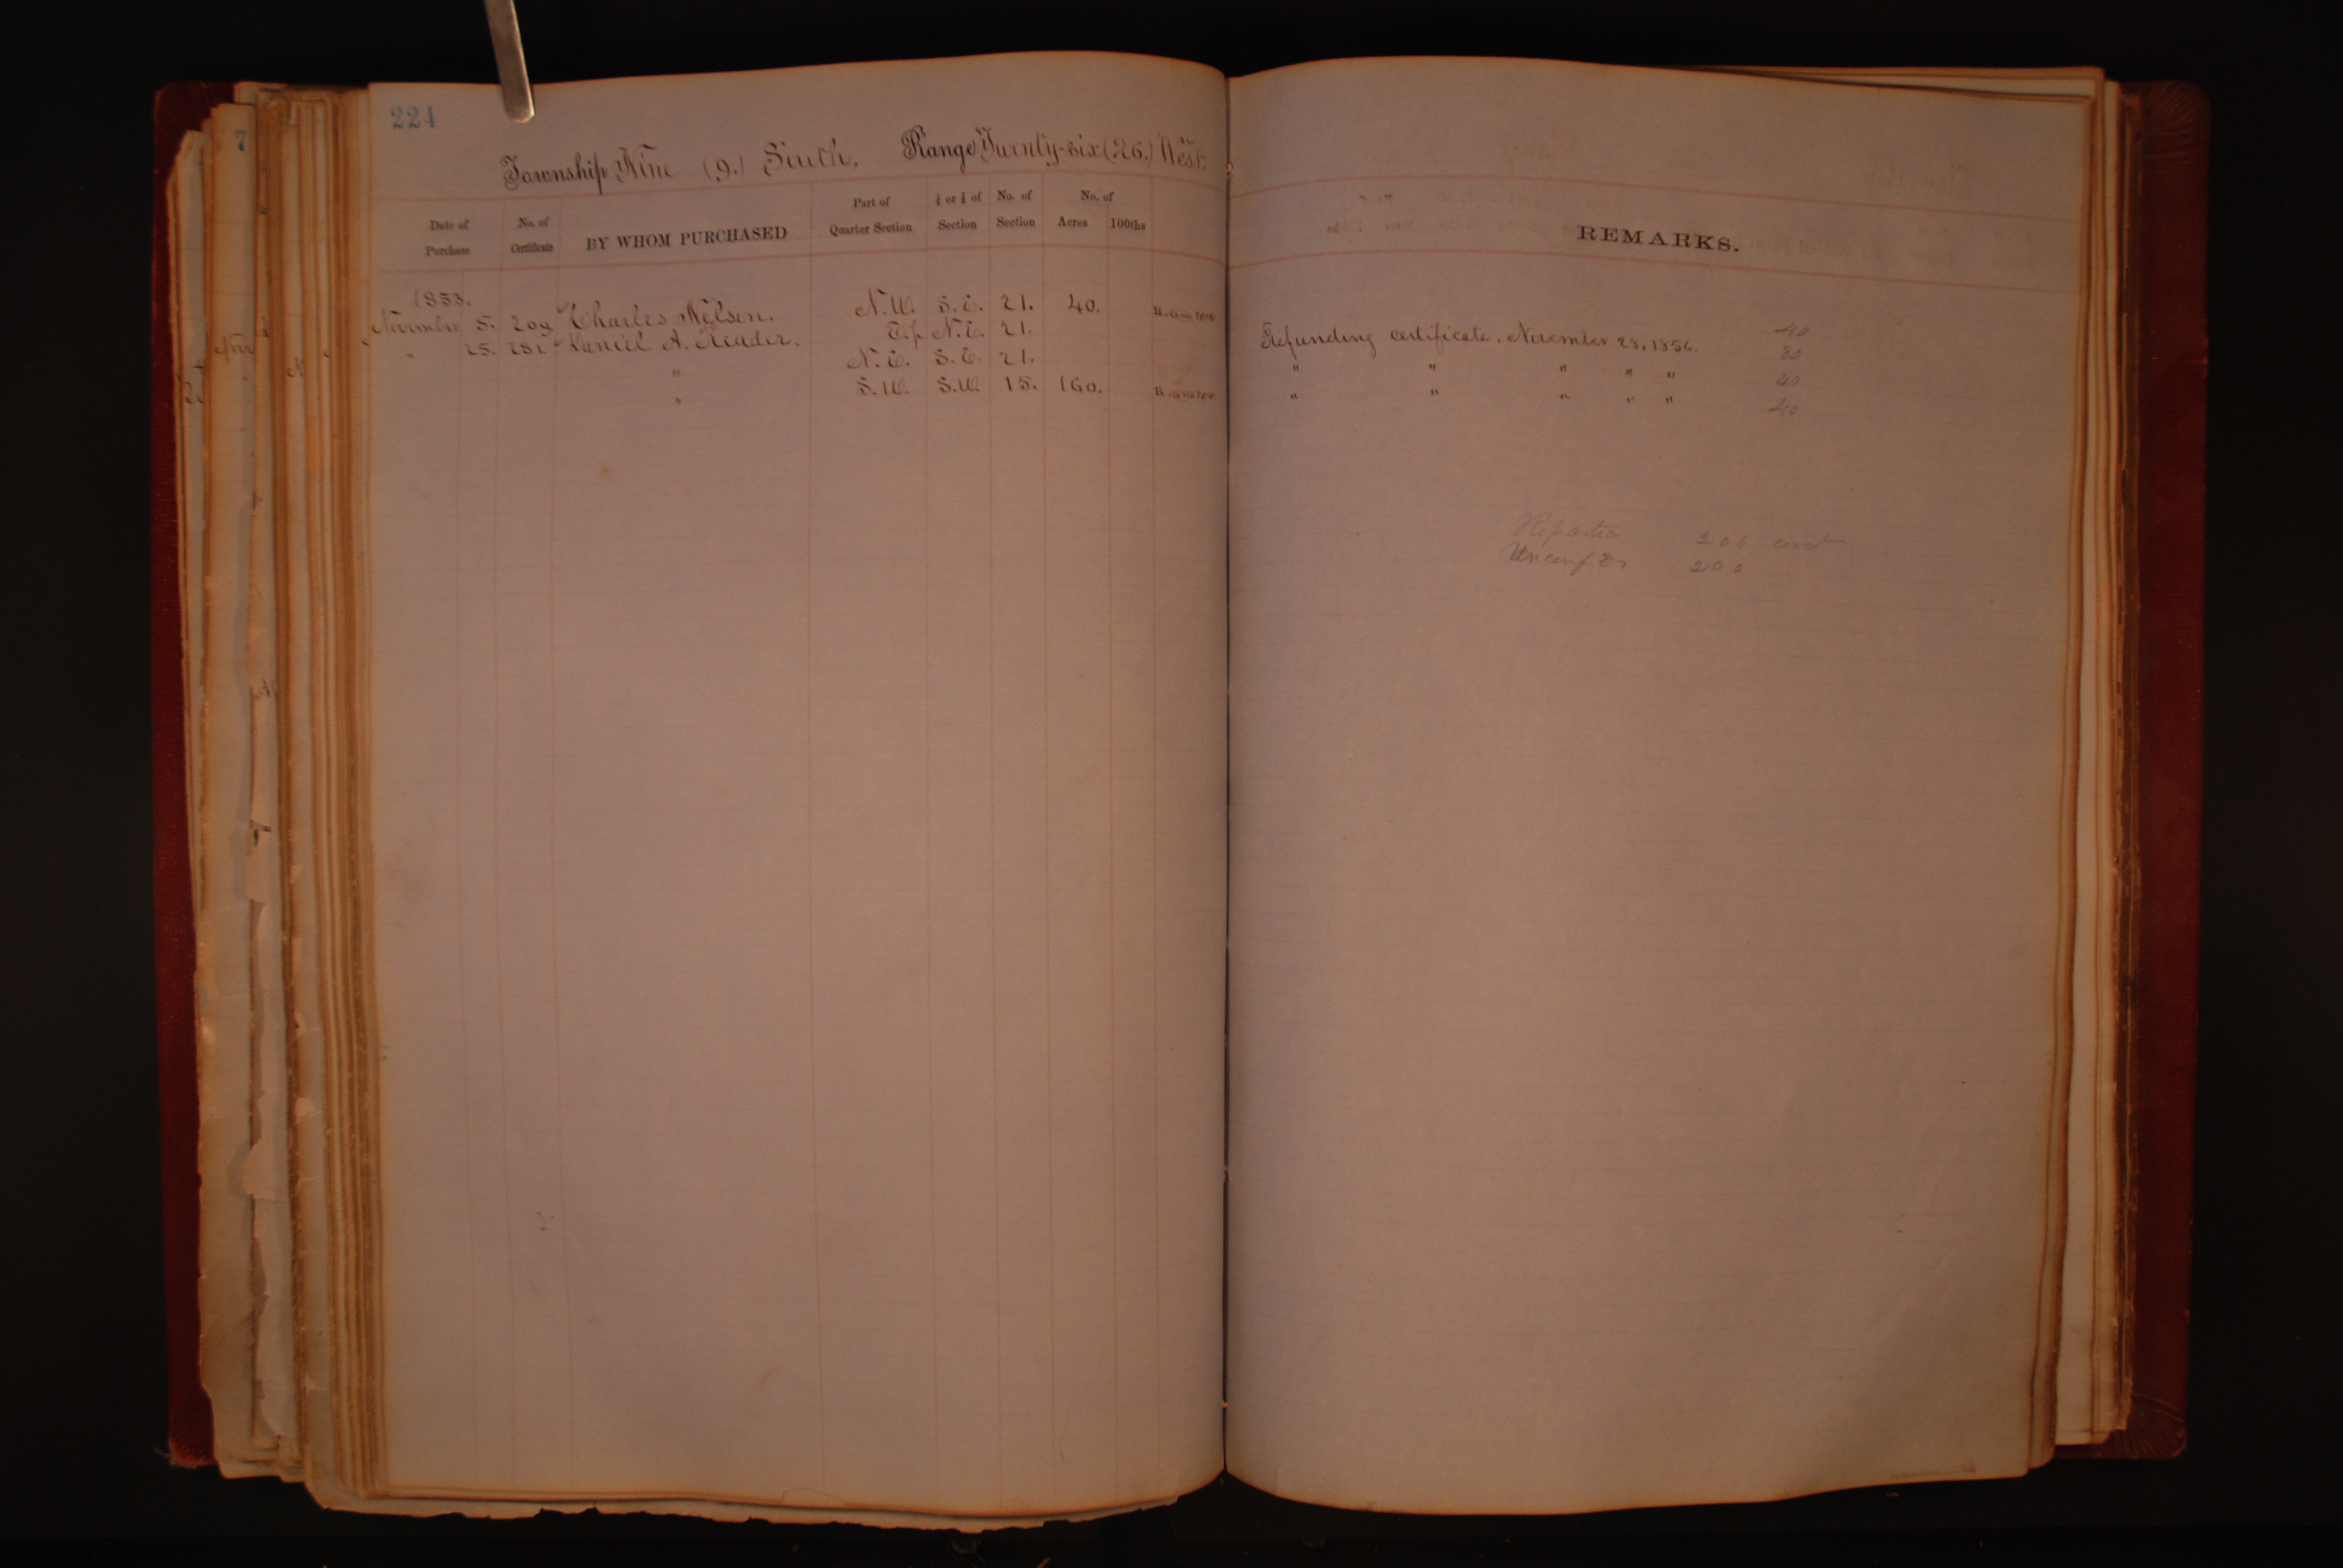 224
Township Nine (9.) South. Range Twenty-six (26.) West.
Date of Purchase No. of Certificate BY WHOM PURCHASED Part of Quarter Section ½ or ¼ of Section No. of Section No. of Acres 100ths
REMARKS.
1853.
November 5. 209 Charles Nelson. N.W. S.E. 21. 40. 40
" 25. 231 Daniel A. Reader. E.½ N.E. 21. Refunding certificate, November 28, 1856. 80
" N.E. S.E. 21. " " " " " 40
" S.W. S.W. 15. 160. " " " " " 40
Reported 200
200